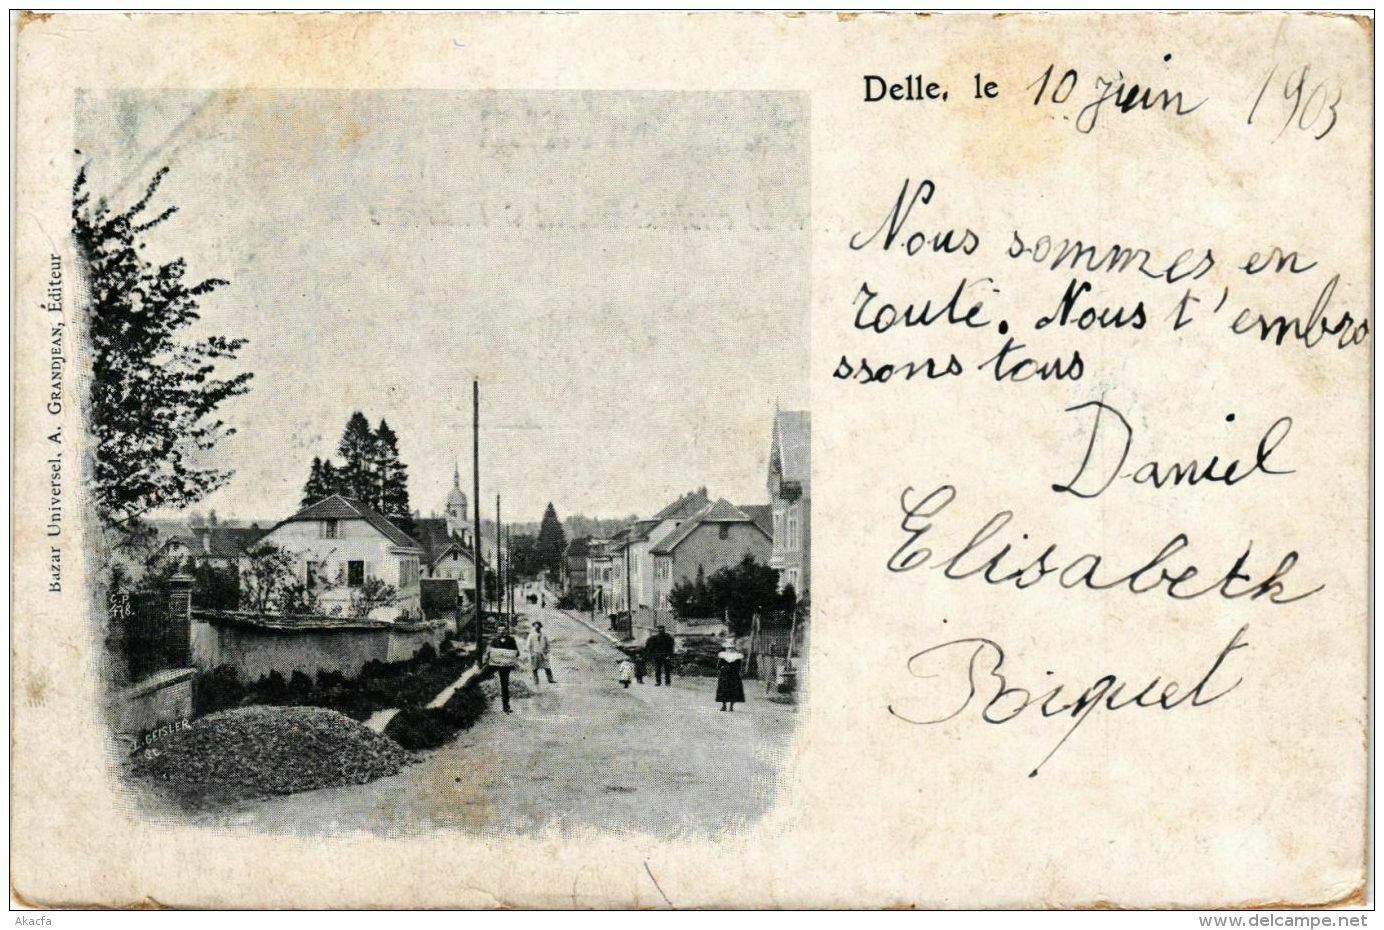 Delle, le 10 Juin 1903
Nous sommes en
route. Nous t'embra
ssons tous
Daniel
Elisabeth
Biquet
Bazar Universel, A. GRANDJEAN, Éditeur
C.P.
418.
L. GEISLER
Akacfa
www.delcampe.net